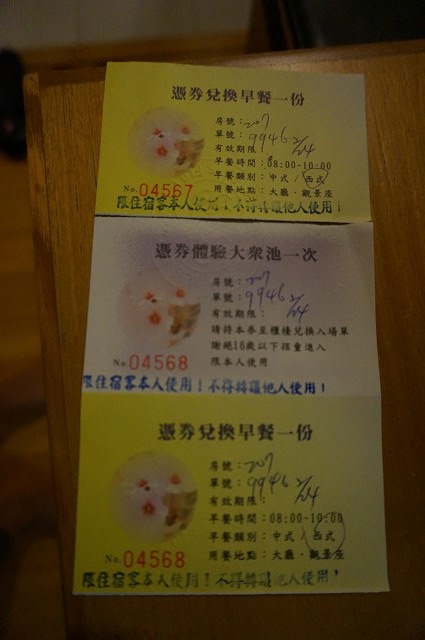 憑券兌換早餐一份
房號：207
單號：9946
有效期限：2/24
早餐時間：08:00-10:00
早餐類別：中式／西式
No.04567 用餐地點：大廳．觀景座
限住宿客本人使用！不得轉讓他人使用！
憑券體驗大眾池一次
房號：207
單號：9946
有效期限：2/24
請持本券至櫃檯兌換入場單
謝絕16歲以下孩童進入
No.04568 限本人使用
限住宿客本人使用！不得轉讓他人使用！
憑券兌換早餐一份
房號：207
單號：9946
有效期限：2/24
早餐時間：08:00-10:00
早餐類別：中式／西式
No.04568 用餐地點：大廳．觀景座
限住宿客本人使用！不得轉讓他人使用！